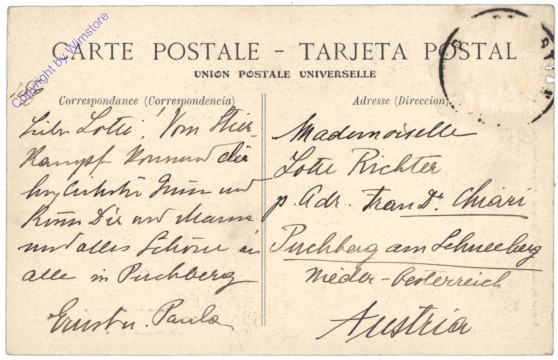 CARTE POSTALE - TARJETA POSTAL
UNION POSTALE UNIVERSELLE
Copyright by Wimstore
Correspondance (Correspondencia)
Liebe Lotte! Vom Stier-
kampf kommend die
herzlichsten Grüsse und
Küsse Dir und Mama
und alles Schöne an
alle in Puchberg
Ernst u. Paula
Adresse (Direccion)
Mademoiselle
Lotte Richter
p. Adr. Frau Dr. Chiari
Puchberg am Schneeberg
Nieder-Oesterreich
Austria